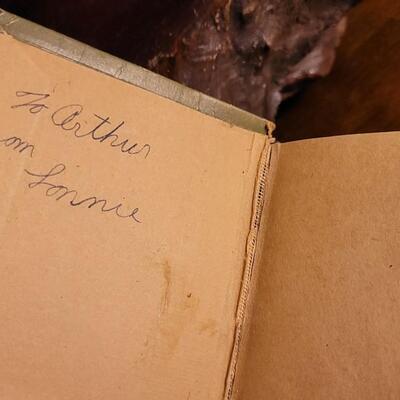 To Arthur
om
Lonnie